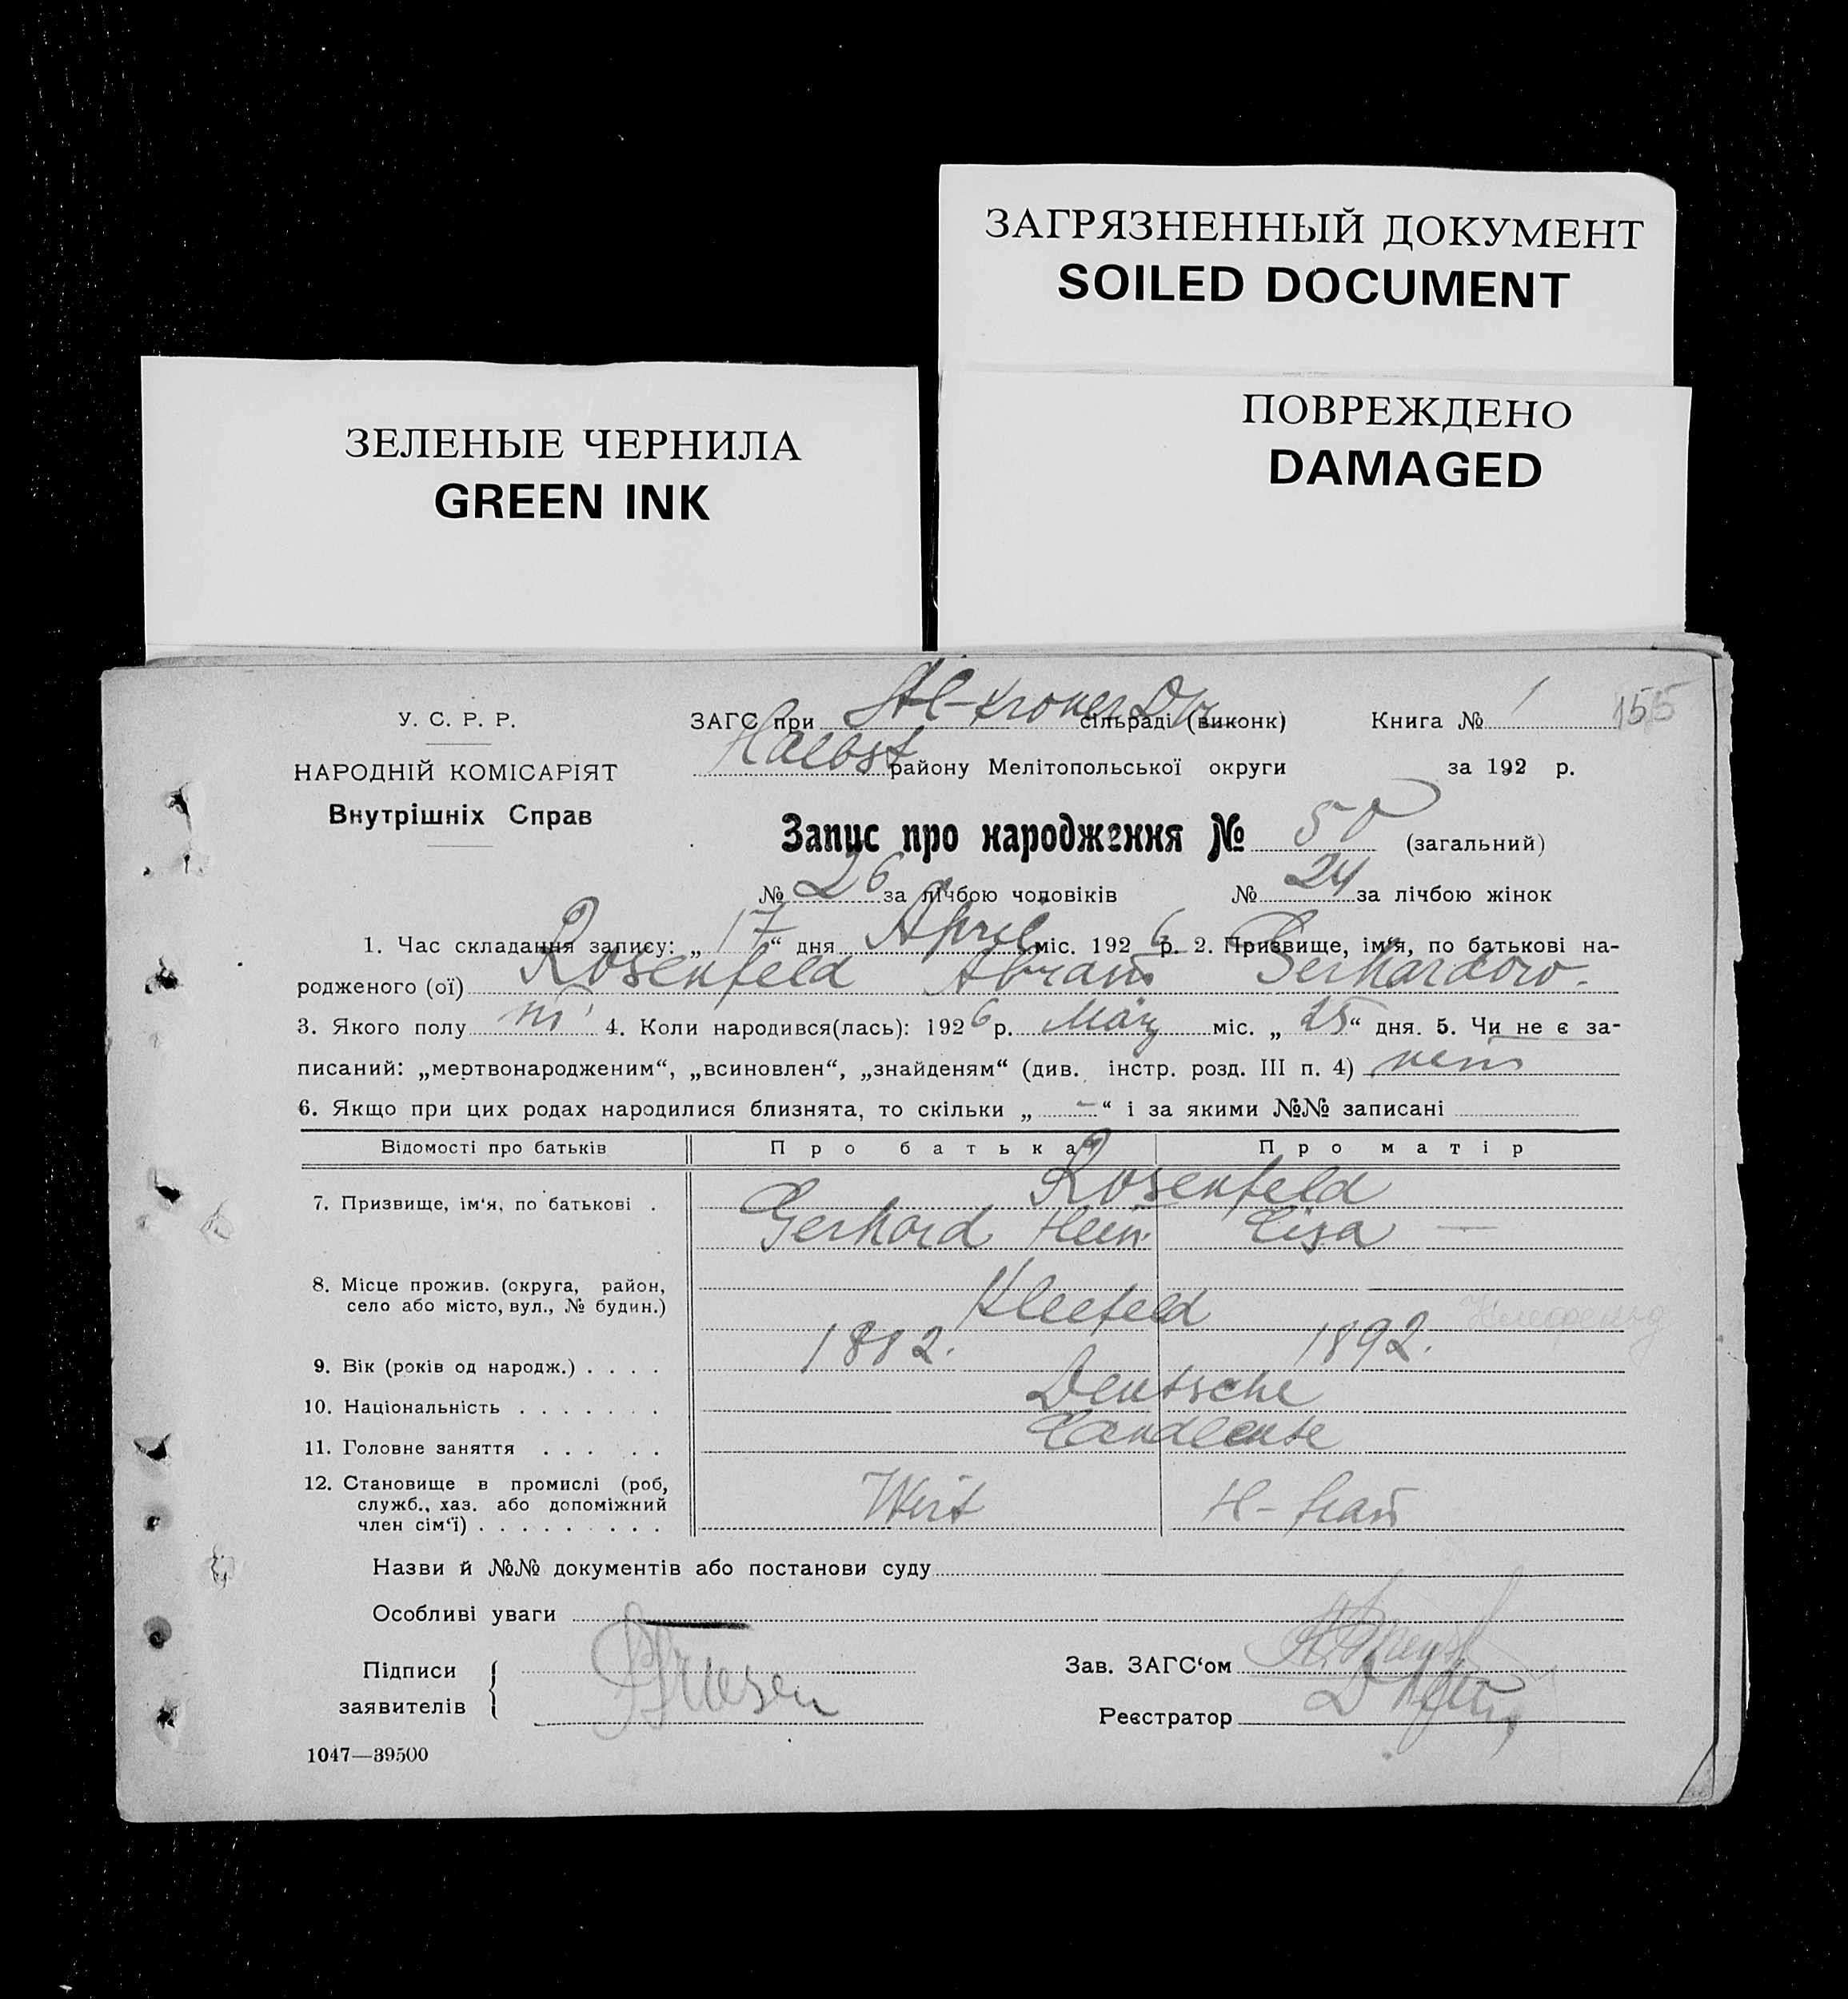 ЗАГРЯЗНЕННЫЙ ДОКУМЕНТ
SOILED DOCUMENT
ПОВРЕЖДЕНО
DAMAGED
ЗЕЛЕНЫЕ ЧЕРНИЛА
GREEN INK
У. С. Р. Р.
НАРОДНІЙ КОМІСАРІЯТ
Внутрішніх Справ
ЗАГС при сільраді (виконк) Книга № 1 155
Halbst району Мелітопольської округи за 192 р.
Запис про народження № 50 (загальний)
№ 26 за лічбою чоловіків № 24 за лічбою жінок
1. Час складання запису: „ 17 “ дня April міс. 1926 р. 2. Призвище, ім‘я, по батькові на-
родженого (ої) Rosenfeld Abram Gerhardow.
3. Якого полу m 4. Коли народився(лась): 1926 р. März міс. „ 25 “ дня. 5. Чи не є за-
писаний: „мертвонародженим“, „всиновлен“, „знайденям“ (див. інстр. розд. III п. 4) nein
6. Якщо при цих родах народилися близнята, то скільки „ – “ і за якими №№ записані
Відомості про батьків Про батька Про матір
7. Призвище, ім‘я, по батькові . Rosenfeld
Gerhard Hein. Lisa —
8. Місце прожив. (округа, район,
село або місто, вул., № будин.) Kleefeld Клефельд
9. Вік (років од народж.) . . . . 1882. 1892.
10. Національність . . . . . . . Deutsche
11. Головне заняття . . . . . Landleute
12. Становище в промислі (роб,
служб., хаз. або допоміжний
член сім‘ї) . . . . . . . . . Wirt H-frau
Назви й №№ документів або постанови суду
Особливі уваги
Підписи
заявителів Friesen
Зав. ЗАГС‘ом
Реєстратор
1047—39500